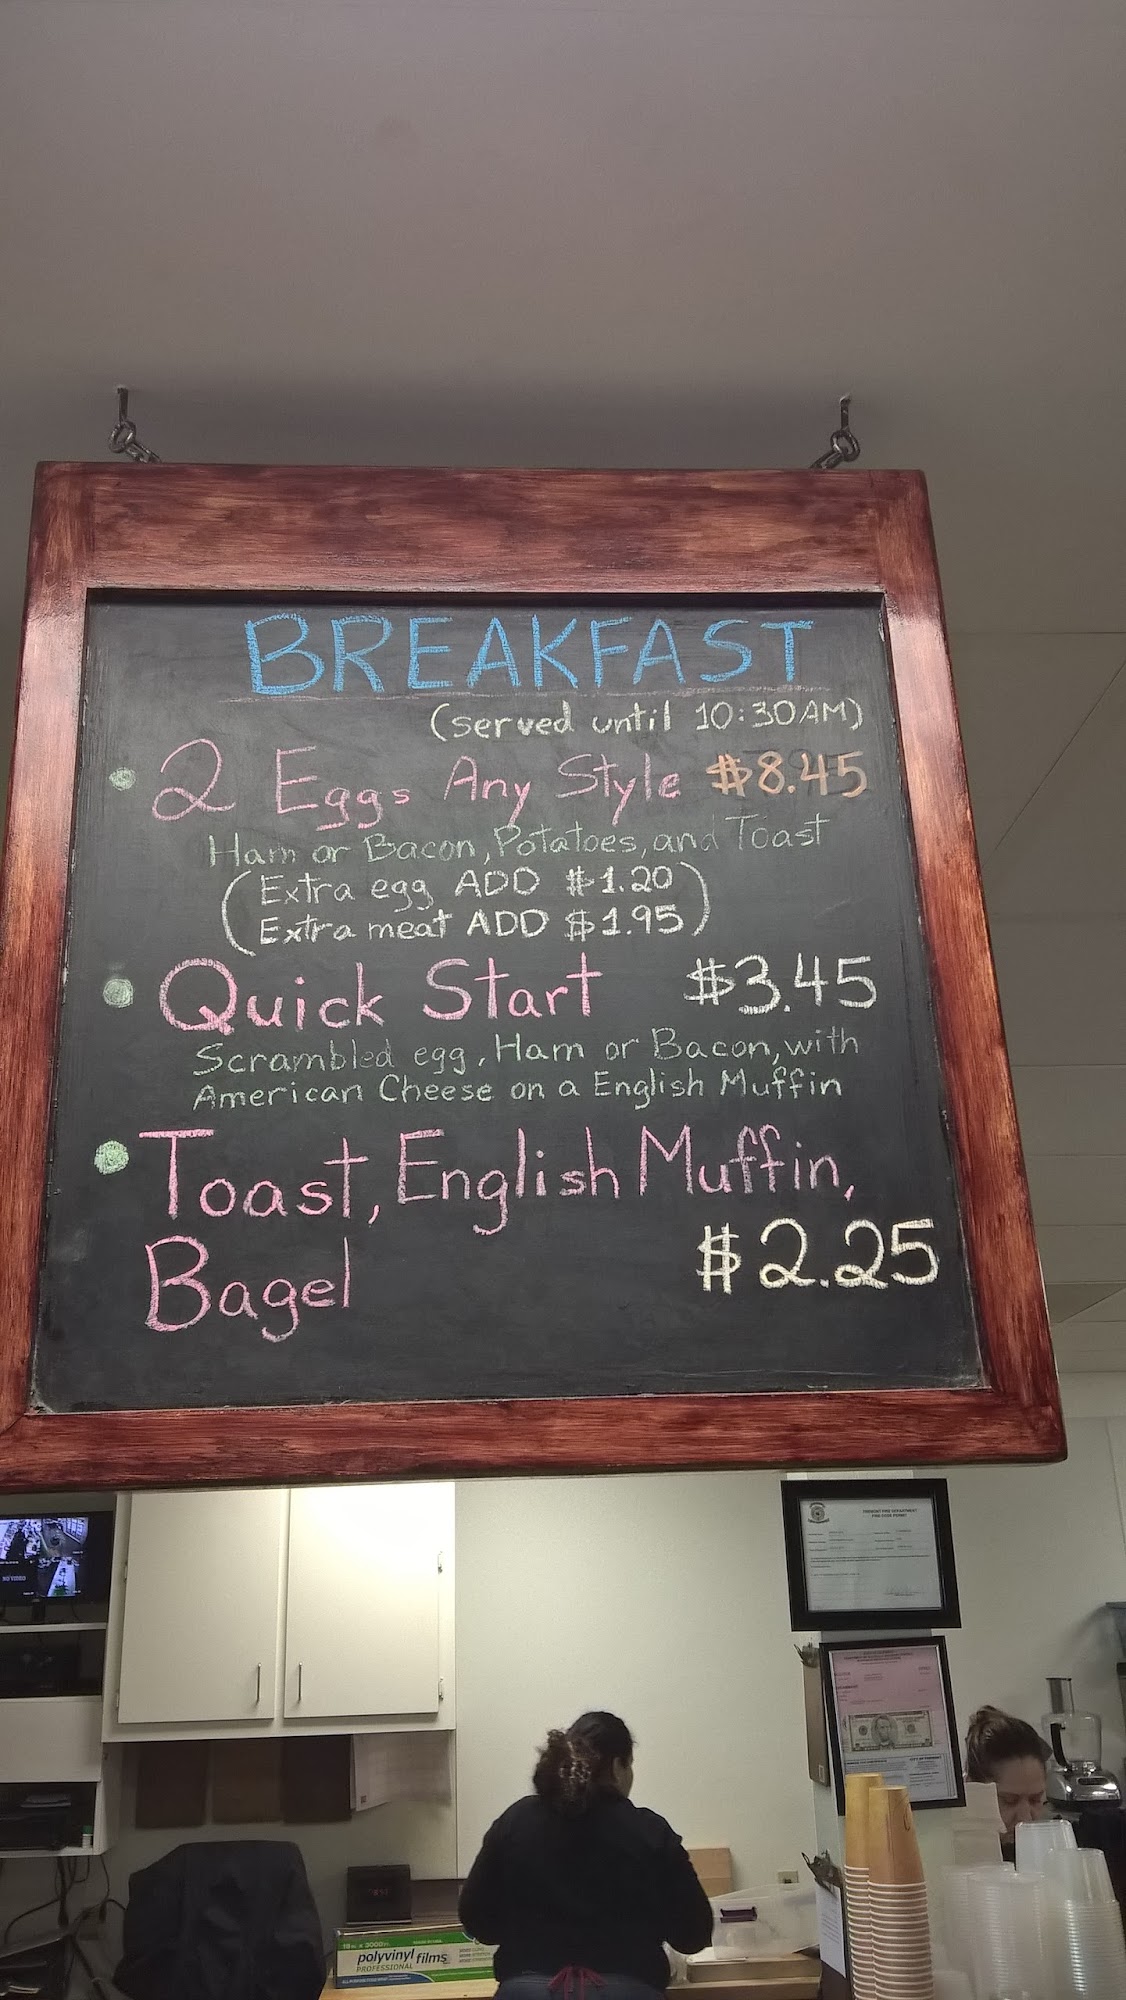 BREAKFAST
(served until 10:30AM)
2 Eggs Any Style $8.45
Ham or Bacon, Potatoes, and Toast
(Extra egg ADD $1.20
Extra meat ADD $1.95)
Quick Start $3.45
Scrambled egg, Ham or Bacon, with
American Cheese on a English Muffin
Toast, English Muffin,
Bagel $2.25
NO VIDEO
polyvinyl films
PROFESSIONAL